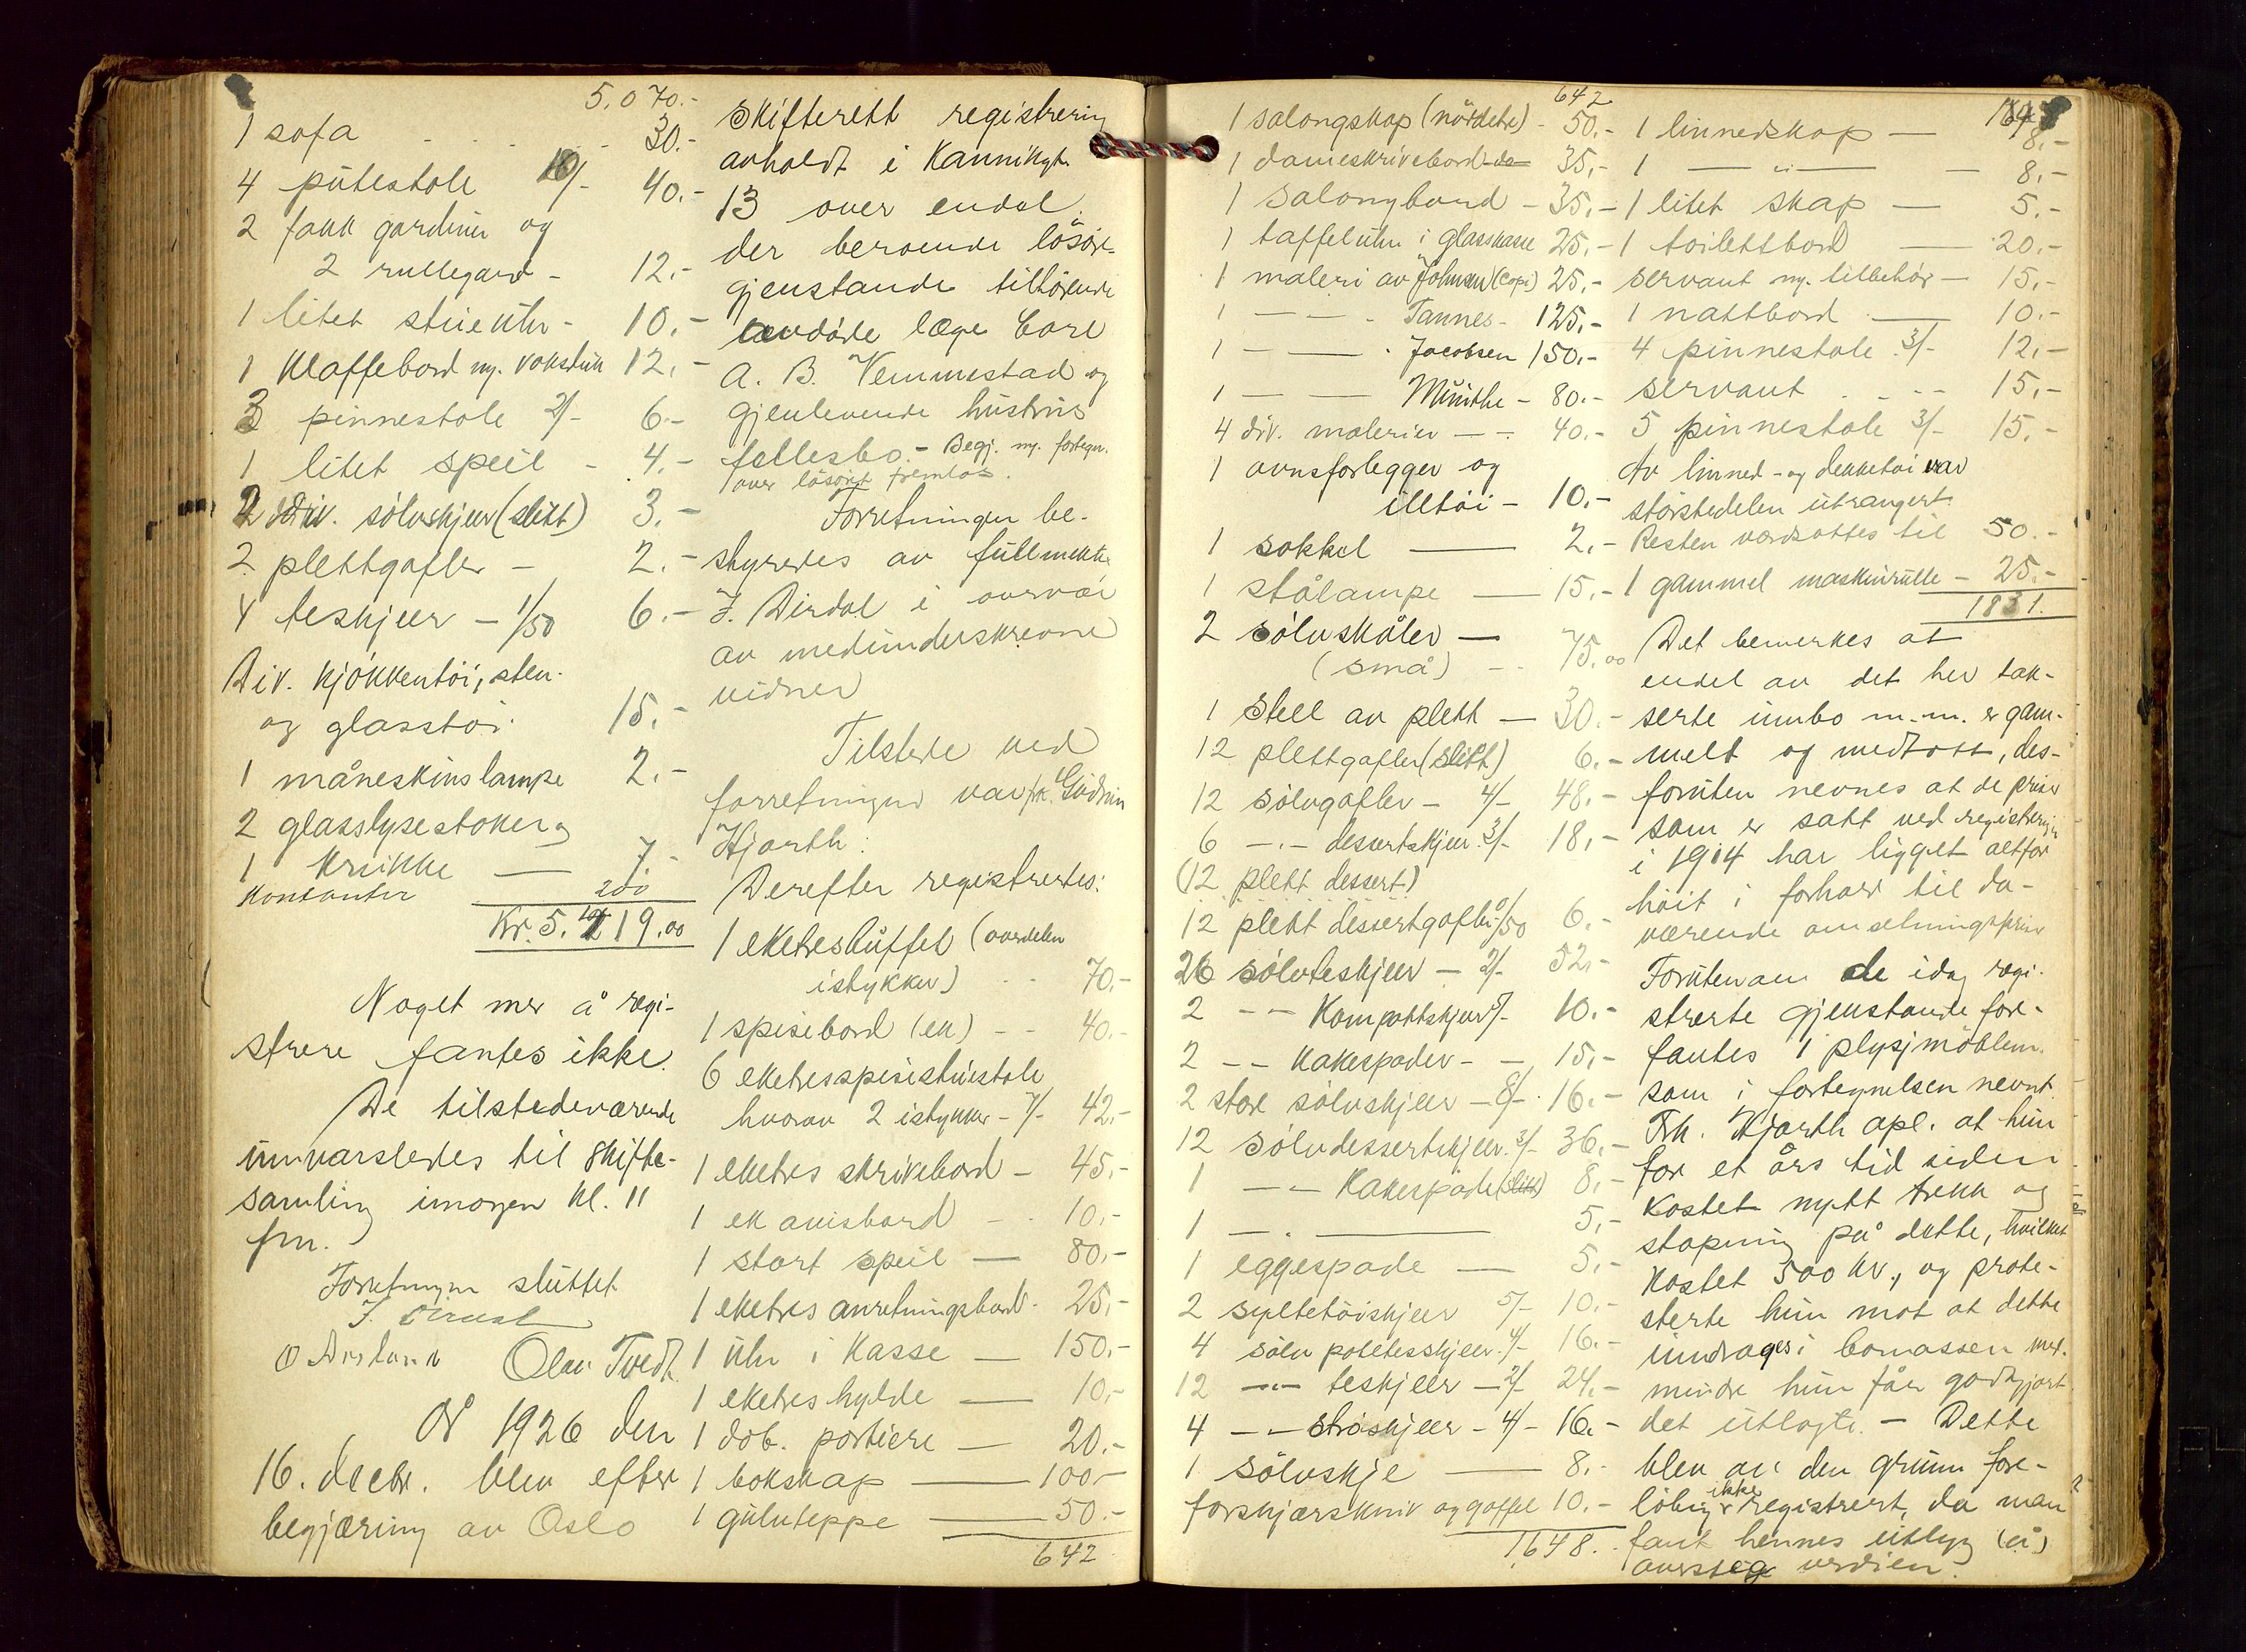 5.070.-
1 sofa . . . . . 30.-
4 putestole 10/- 40.-
2 fakk gardiner og
2 rullegard - 12.-
1 litet stueuhr - 10.-
1 Klaffebord m. voksduk 12.-
3 pinnestole 2/- 6.-
1 litet speil - 4.-
2 div. sølvskjeer (slitt) 3.-
2 plettgafler - 2.-
4 teskjeer - 1/50 6.-
Div. kjøkkentøi, sten-
og glasstøi. 15.-
1 måneskinslampe 2.-
2 glasslysestaker og
1 krukke — 7.-
Kontanter 200
Kr. 5. 19.00
Noget mer å regi-
strere fantes ikke.
De tilstedeværende
innvarsledes til skifte-
samling imorgen kl. 11
fm.
Forretningen sluttet
Olav Tvedt
År 1926 den
16. decbr. blev efter
begjæring av Oslo
skifterett registrering
avholdt i Kannikgt.
13 over endel
der beroende løsøre-
gjenstande tilhørende
avdøde læge Carl
A. B. Vemmestad og
gjenlevende hustrus
fellesbo. - Begj. m. fortegn.
over løsøret fremlås.
Forretningen be-
styredes av fullmektig
J. Dirdal i overvær
av medunderskrevne
vidner
Tilstede ved
forretningen var frk. Gudrun
Hjorth.
Derefter registrertes:
1 eketresbuffet (overdelen
istykker) - - 70.-
1 spisebord (ek) - - 40.-
6 eketresspisestuestole
hvorav 2 istykker - 7/- 42.-
1 eketres skrivebord - 45.-
1 ek avisbord - - 10.-
1 stort speil — 80.-
1 eketres anretningsbord - 25.-
1 uhr i kasse — 150.-
1 eketres hylde — 10.-
1 dob. portiere — 20.-
1 bokskap — 100.-
1 gulvteppe — 50.-
642
642
1 salongskap (nøddetre) - 50.-
1 dameskrivebord - do 35.-
1 salongbord - 35.-
1 taffeluhr i glasskasse 25.-
1 maleri av Johnsen (Copi) 25.-
1 — — - Tannes - 125.-
1 — — - Jacobsen 150.-
1 — — Munthe - 80.-
4 div. malerier — - 40.-
1 ovnsforlegger og
illtøi - 10.-
1 sokkel — 2.-
1 stålampe — 15.-
2 sølvskåler —
(små) - - 75.00
1 stell av plett — 30.-
12 plettgafler (slitt) 6.-
12 sølvgafler - 4/- 48.-
6 -.- dessertskjeer 3/- 18.-
(12 plett dessert)
12 plett dessertgafler 0/50 6.-
26 sølvteskjeer - 2/- 52.-
2 - - Kompottskjeer 5/- 10.-
2 - - Kakespader - - 15.-
2 store sølvskjeer - 8/- 16.-
12 sølvdessertskjeer 3/- 36.-
1 — - Kakespade (slitt) 8.-
1 — . — 5.-
1 eggespade — 5.-
2 syltetøiskjeer 5/- 10.-
4 sølv potetesskjeer 4/- 16.-
12 -"- teskjeer - 2/- 24.-
4 - - strøskjeer - 4/- 16.-
1 sølvskje — 8.-
forskjærskniv og gaffel 10.-
1648.-
1648
1 linnedskap — 8.-
1 — " — — 8.-
1 litet skap — 5.-
1 toilettbord — 20.-
servant m. tilbehør — 15.-
1 nattbord — 10.-
4 pinnestole 3/- 12.-
servant . . - - 15.-
5 pinnestole 3/- 15.-
Av linned- og dekketøi var
størstedelen utrangert.
Resten værdsattes til 50.-
1 gammel maskinrulle - 25.-
1831.
Det bemerkes at
endel av det her tak-
serte innbo m.m. er gam-
melt og medtatt, des-
foruten nevnes at de priser
som er satt ved registrering
i 1914 har ligget altfor
høit i forhold til da-
værende omsetningspriser
Forutenom de idag regi-
strerte gjenstande fore-
fantes 1 plysjmøblem.
som i fortegnelsen nevnt.
Frk. Hjorth opl. at hun
for et års tid siden
kostet nytt trekk og
stopning på dette, hvilket
kostet 500 kr., og prote-
sterte hun mot at dette
inndrages i bomassen med-
mindre hun får godtgjort
det utlagte. - Dette
blev av den grunn fore-
løbig ikke registrert, da man
fant hennes utlegg
oversteg verdien.